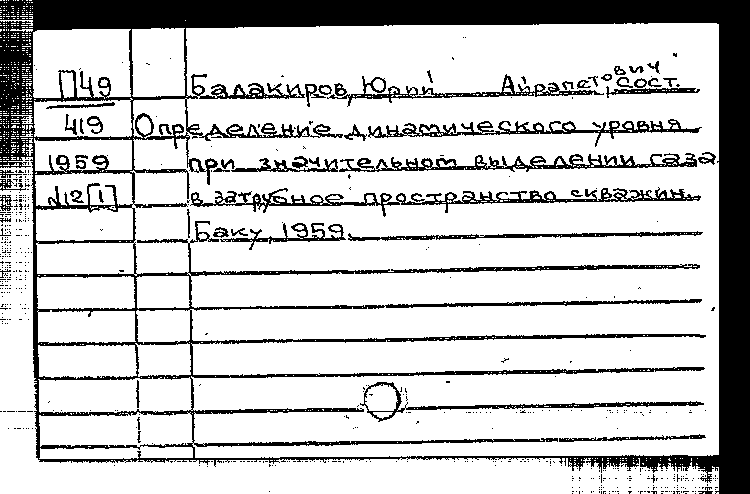 П49 Балакиров, Юрий Айрапетович, сост.
419 Определение динамического уровня
1959 при значительном выделении газа
№12[1] в затрубное пространство скважин.
Баку, 1959.